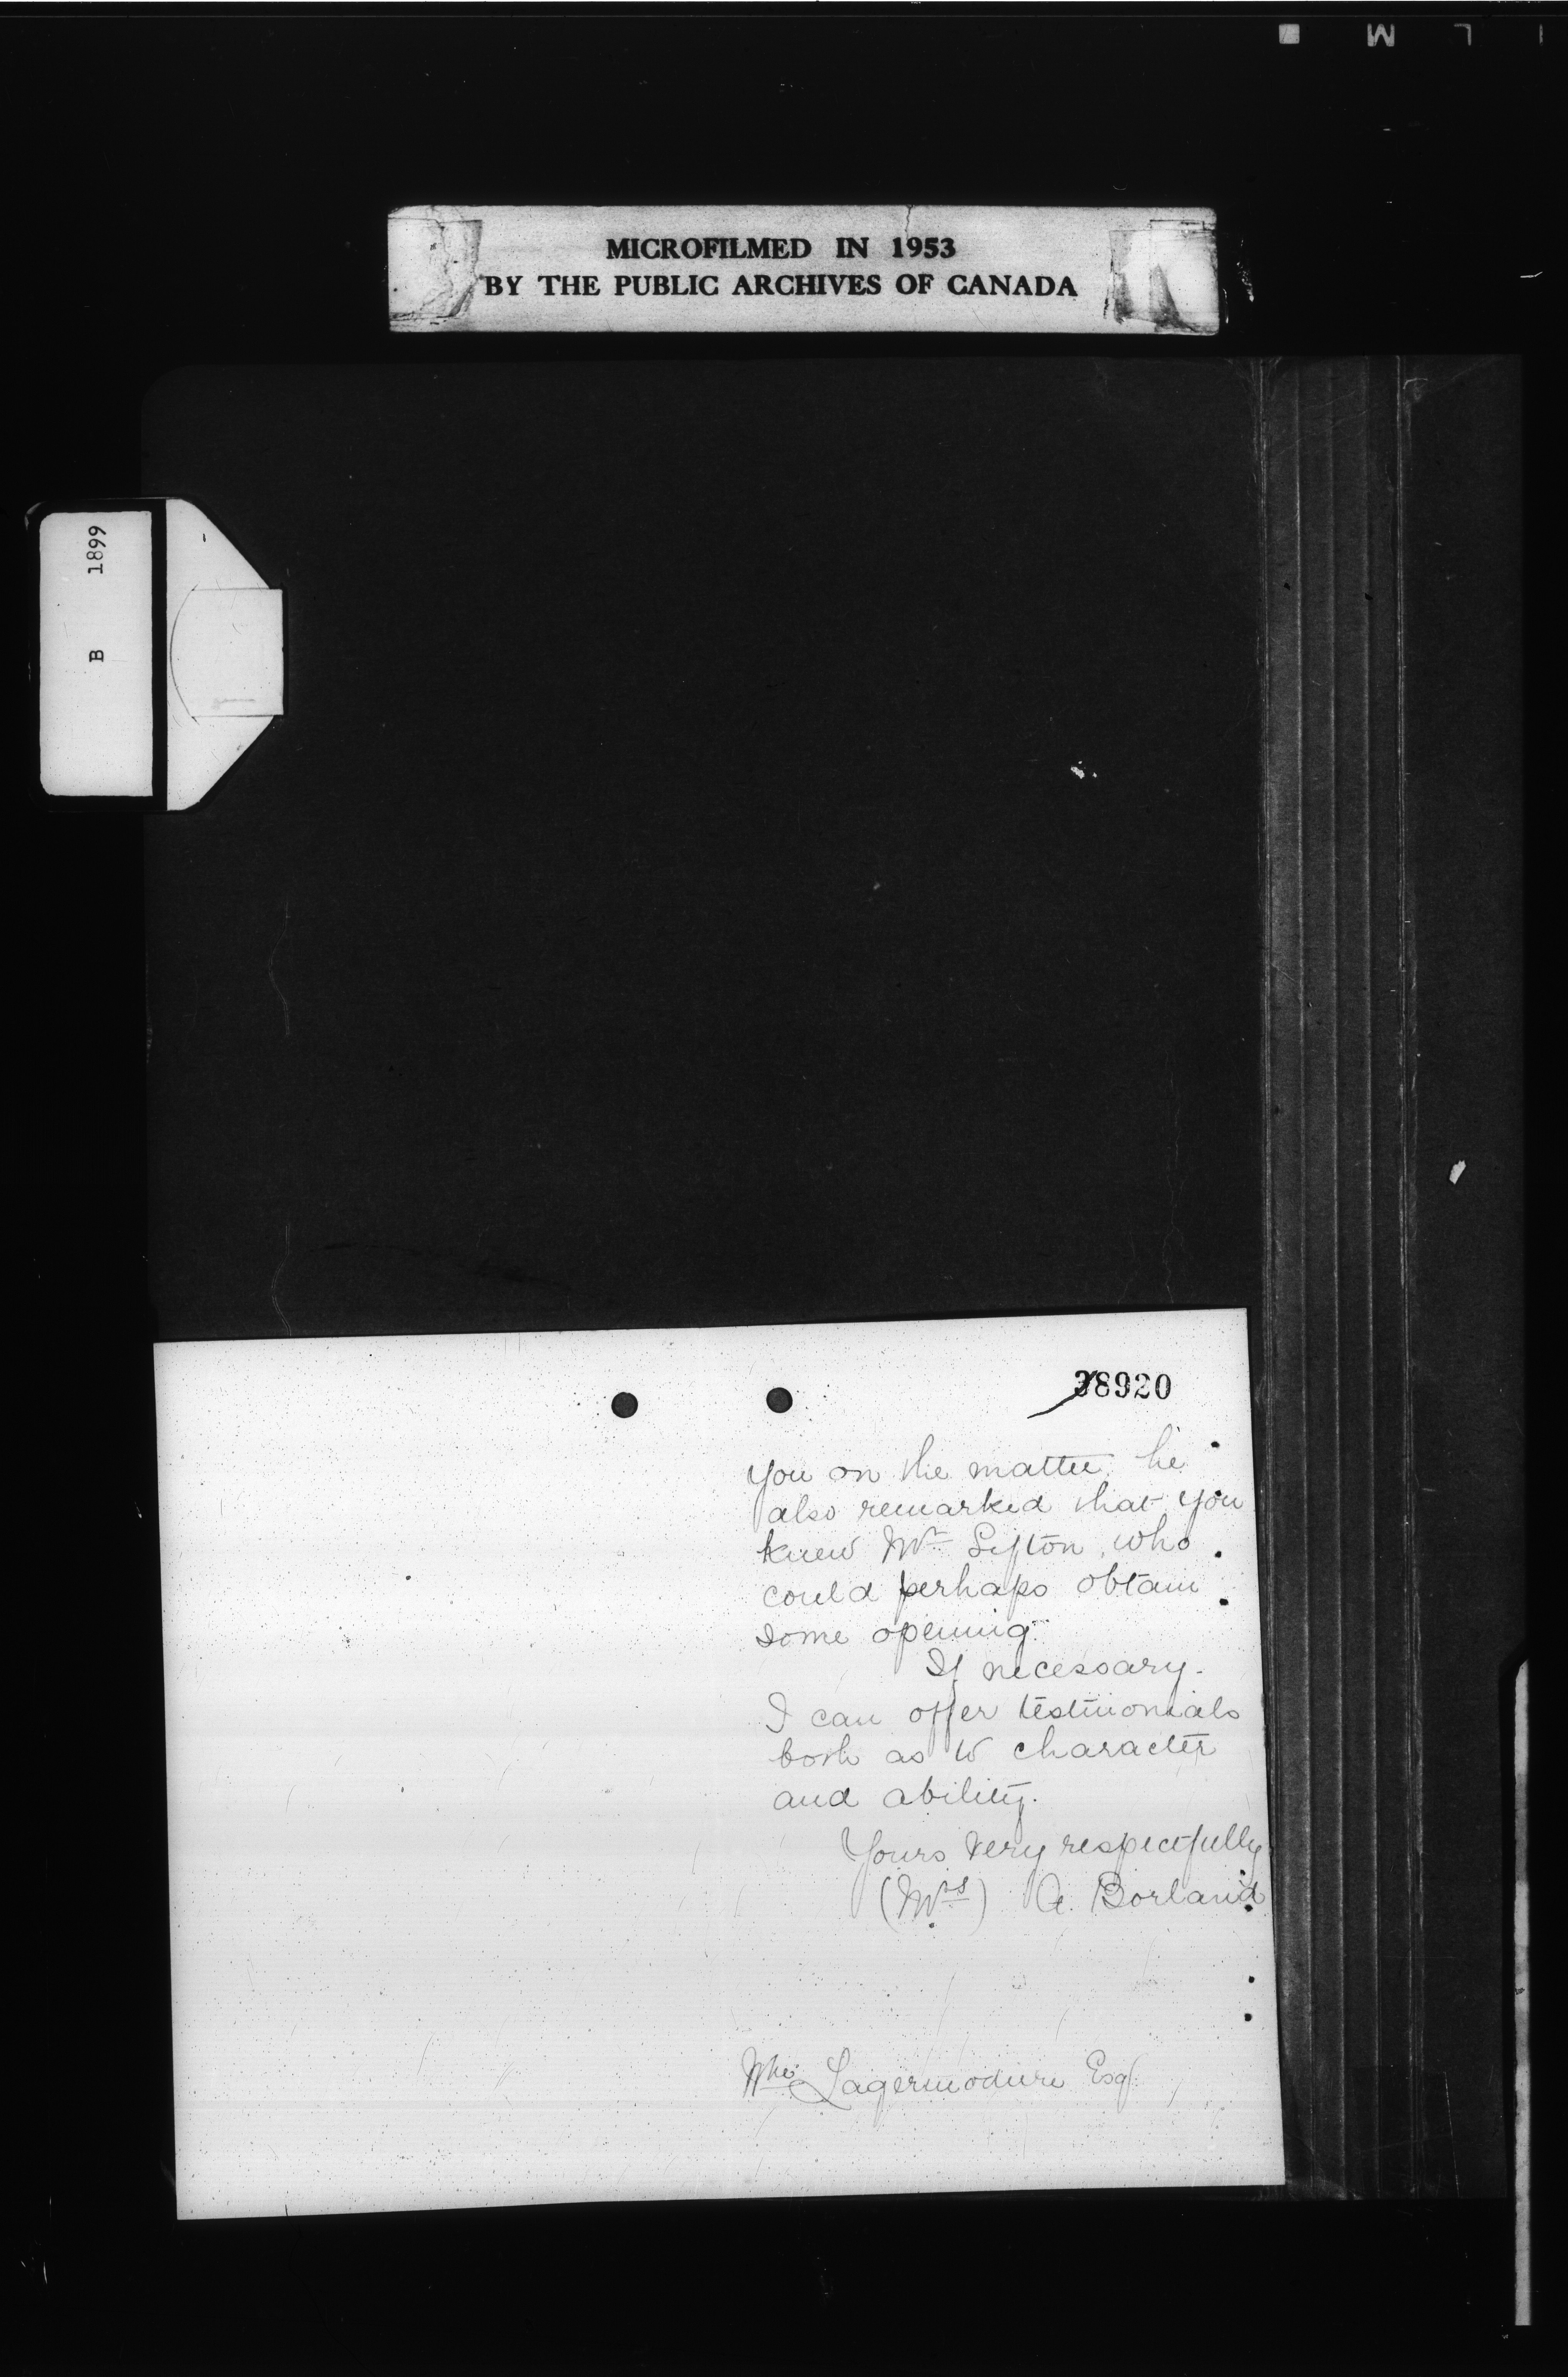 MICROFILMED IN 1953
BY THE PUBLIC ARCHIVES OF CANADA
B 1899
38920
you on the matter, he
also remarked that you
knew Mr Sifton, who
could perhaps obtain
some opening.
If necessary.
I can offer testimonials
both as to character
and ability.
Yours very respectfully
(Mrs) A. Borland
Lagermodiere Esq.